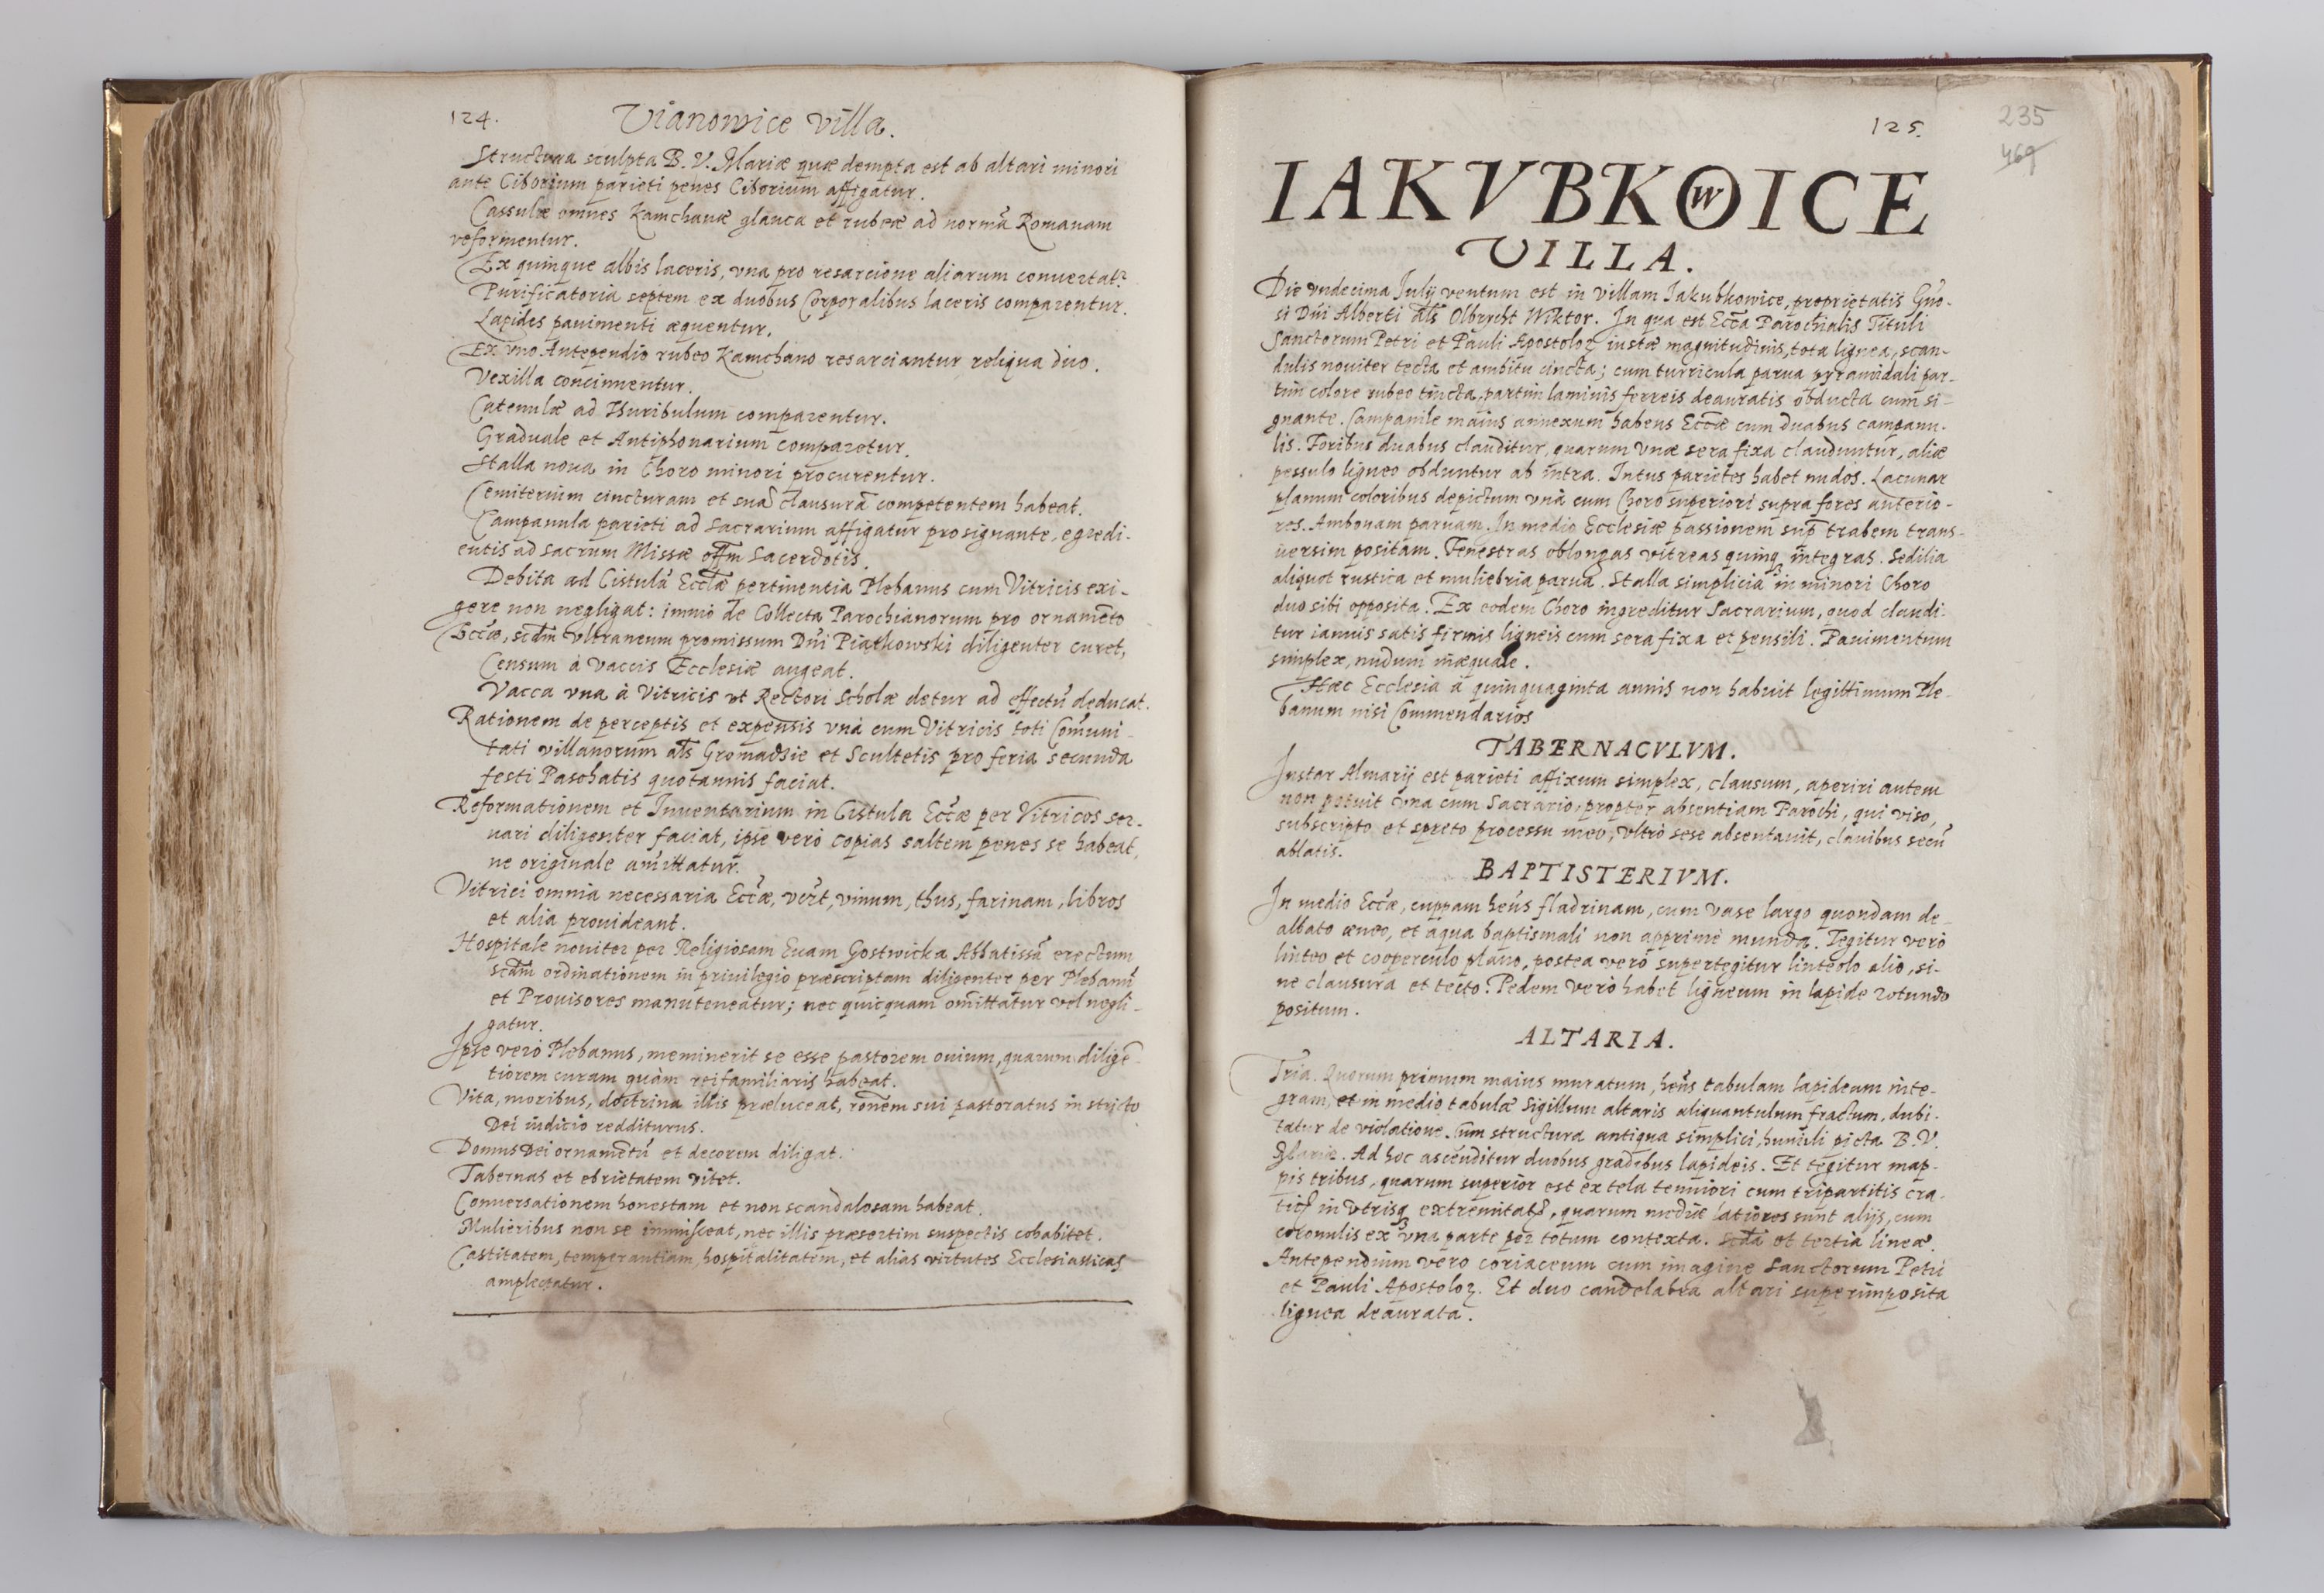 124.
Vianowice villa.
Structura sculpta B. V. Mariæ quæ dempta est ab altari minori
ante Ciborium parieti penes Ciborium affigatur.
Cassulæ omnes Kamchanæ glauca et rubeæ ad normã Romanam
reformentur.
Ex quinque albis laceris, vna pro resarcione aliarum conuertat.
Purificatoria septem ex duobus Corporalibus laceris comparentur.
Lapides pauimenti æquentur.
Ex vno Antependio rubeo Kamchano resarciantur reliqua duo.
Vexilla concinnentur.
Catenulæ ad Thuribulum comparentur.
Graduale et Antiphonarium comparetur.
Stalla noua in Choro minori procurentur.
Cemiterium cincturam et suã clausurã competentem habeat.
Campanula parieti ad Sacrarium affigatur pro signante, egredi-
entis ad Sacrum Missæ offm Sacerdotis.
Debita ad Cistulã Eccłæ pertinentia Plebanus cum Vitricis exi-
gere non negligat: immò de Collecta Parochianorum pro ornamẽto
Eccæ, scdm vltraneum promissum Dñi Piątkowski diligenter curet,
Censum à vaccis Ecclesiæ augeat.
Vacca vna à Vitricis vt Rectori Scholæ detur ad effectũ deducat.
Rationem de perceptis et expensis vnà cum Vitricis toti Cõmuni-
tati villanorum als Gromadzie et Scultetis pro feria secunda
festi Paschatis quotannis faciat.
Reformationem et Inuentarium in Cistula Eccæ per Vitricos ser-
uari diligenter faciat, ipse verò copias saltem penes se habeat,
ne originale amittatur.
Vitrici omnia necessaria Eccæ, vĩt, vinum, thus, farinam, libros
et alia prouideant.
Hospitale nouiter per Religiosam Euam Gostwicka Abbatissã erectum
scdm ordinationem in priuilegio præscriptam diligenter per Plebanũ
et Prouisores manuteneatur; nec quicquam omittatur vel negli-
gatur.
Ipse verò Plebanus, meminerit se esse pastorem ouium, quarum diligẽ-
tiorem curam quàm rei familiaris habeat.
Vita, moribus, doctrina illis præluceat, rõnem sui pastoratus in stricto
Dei iudicio redditurus.
Domus Dei ornamẽtũ et decorem diligat.
Tabernas et ebrietatem vitet.
Conuersationem honestam et non scandalosam habeat.
Mulieribus non se immisceat, nec illis præsertim suspectis cohabitet.
Castitatem, temperantiam, hospitalitatem, et alias virtutes Ecclesiasticas
amplectatur.
125.
235
469
IAKVBKOWICE
VILLA.
Die vndecima Julij ventum est in villam Iakubkowice, proprietatis Gño-
si Dñi Alberti als Olbrycht Wiktor. In qua est Eccła Parochialis Tituli
Sanctorum Petri et Pauli Apostoloꝝ iustæ magnitudinis, tota lignea, scan-
dulis nouiter tecta et ambitu cincta; cum turricula parua pyramidali par-
tim colore rubeo tincta, partim laminis ferreis deauratis obducta cum si-
gnante. Campanile maius annexum habens Eccæ cum duabus campanu-
lis. Foribus duabus clauditur, quarum vnæ sera fixa clauduntur, aliæ
pessulo ligneo obduntur ab intra. Intus parietes habet nudos. Lacunar
planum coloribus depictum vnà cum Choro superiori supra fores anterio-
res. Ambonam paruam. In medio Ecclesiæ passionem sup̃ trabem trans-
uersim positam. Fenestras oblongas vitreas quinqꝫ integras. Sedilia
aliquot rustica et muliebria parua. Stalla simplicia in minori Choro
duo sibi opposita. Ex eodem Choro ingreditur Sacrarium, quod claudi-
tur ianuis satis firmis ligneis cum sera fixa et pensili. Pauimentum
simplex, nudum inæquale.
Hæc Ecclesia à quinquaginta annis non habuit legittimum Ple-
banum nisi Commendarios
TABERNACVLVM.
Instar Almarij est parieti affixum simplex, clausum, aperiri autem
non potuit vna cum Sacrario, propter absentiam Parochi, qui viso,
subscripto et spreto processu meo, vltrò sese absentauit, clauibus secũ
ablatis.
BAPTISTERIVM.
In medio Eccæ, cuppam hẽns fladrinam, cum vase largo quondam de-
albato æneo, et aqua baptismali non apprimè munda. Tegitur verò
linteo et cooperculo plano, postea verò supertegitur linteolo alio, si-
ne clausura et tecto. Pedem verò habet ligneum in lapide rotundo
positum.
ALTARIA.
Tria. Quorum primum maius muratum, hẽns tabulam lapideam inte-
gram, et in medio tabulæ Sigillum altaris aliquantulum fractum, dubi-
tatur de violatione. Cum structura antiqua simplici, humili picta B. V.
Mariæ. Ad hoc ascenditur duobus gradibus lapideis. Et tegitur map-
pis tribus, quarum superior est ex tela tenuiori cum tripartitis cra-
tic in vtrisqꝫ extremitat, quarum mediæ latiores sunt alijs, cum
coronulis ex vna parte per totum contexta. Scda et tertia lineæ.
Antependium vero coriaceum cum imagine Sanctorum Petri
et Pauli Apostoloꝝ. Et duo candelabra altari superimposita
lignea deaurata.